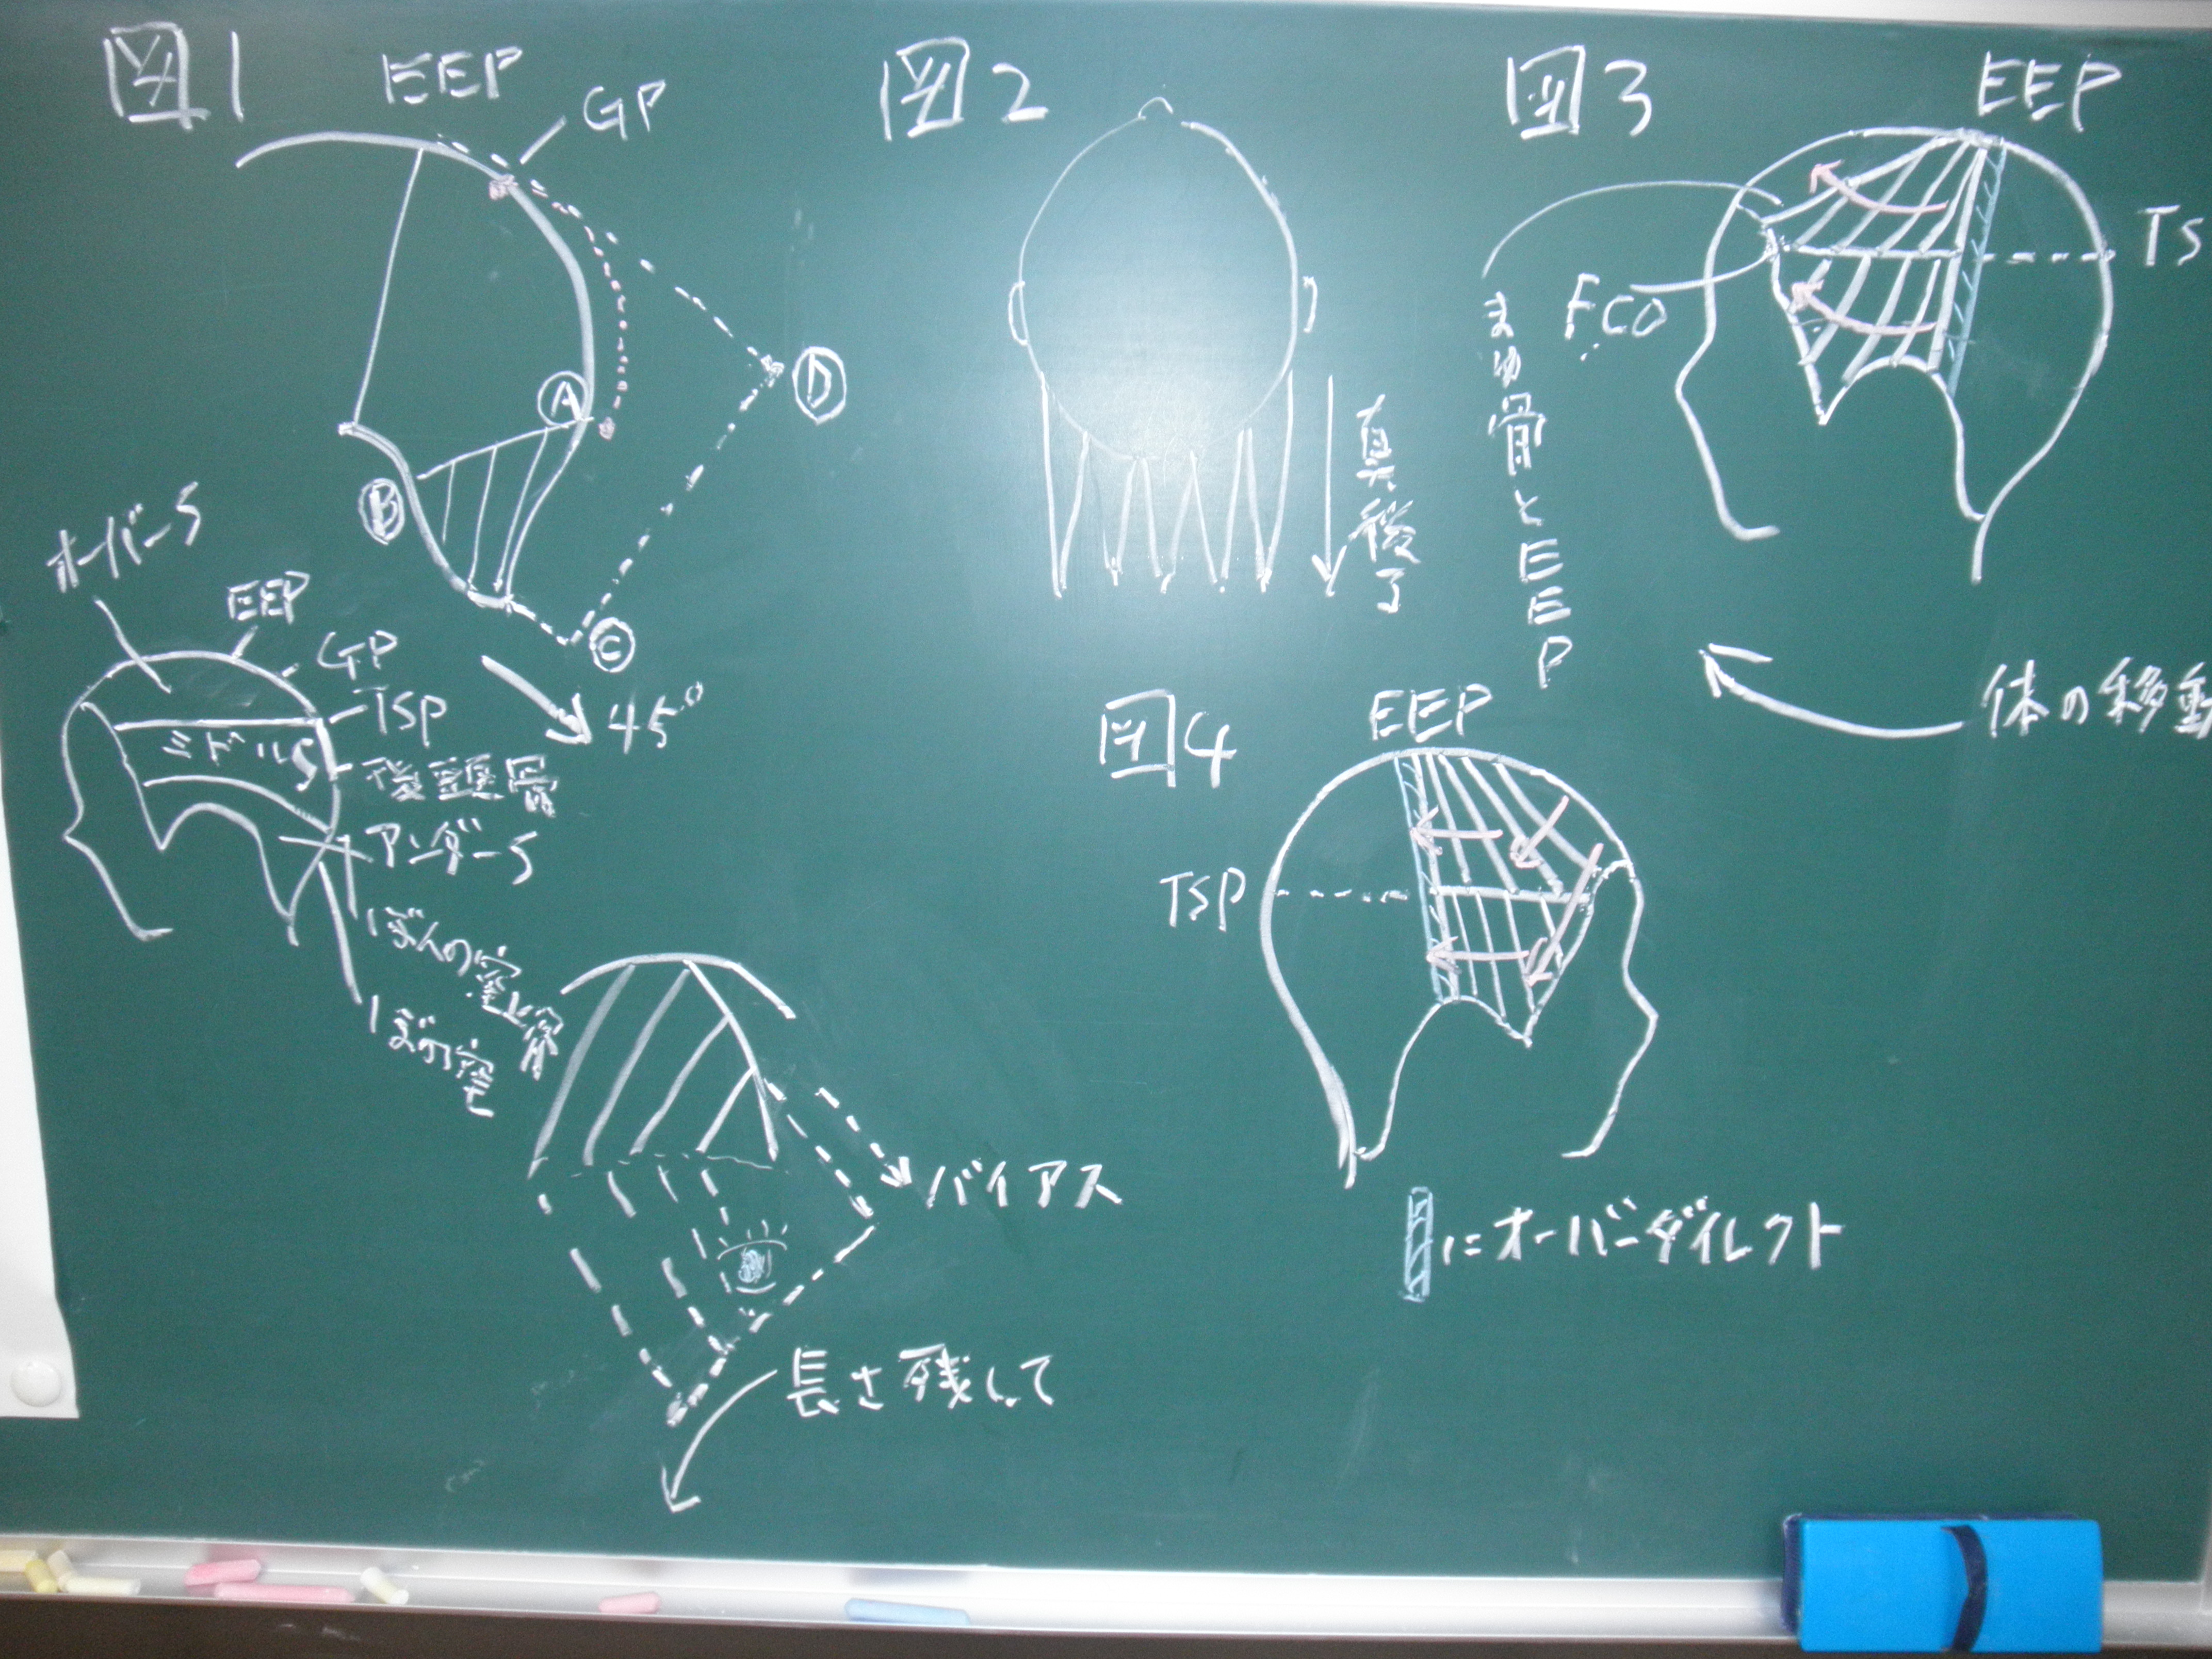 図1
EEP
GP
Ⓐ
Ⓑ
Ⓒ
Ⓓ
45°
オーバーS
EEP
GP
TSP
ミドルS
後頭骨
アンダーS
ぼんの空上骨
ぼの空
バイアス
長さ残して
図2
真後了
図3
EEP
TS
FCO
まゆ骨とEEP
体の移動
図4
EEP
TSP
にオーバーダイレクト